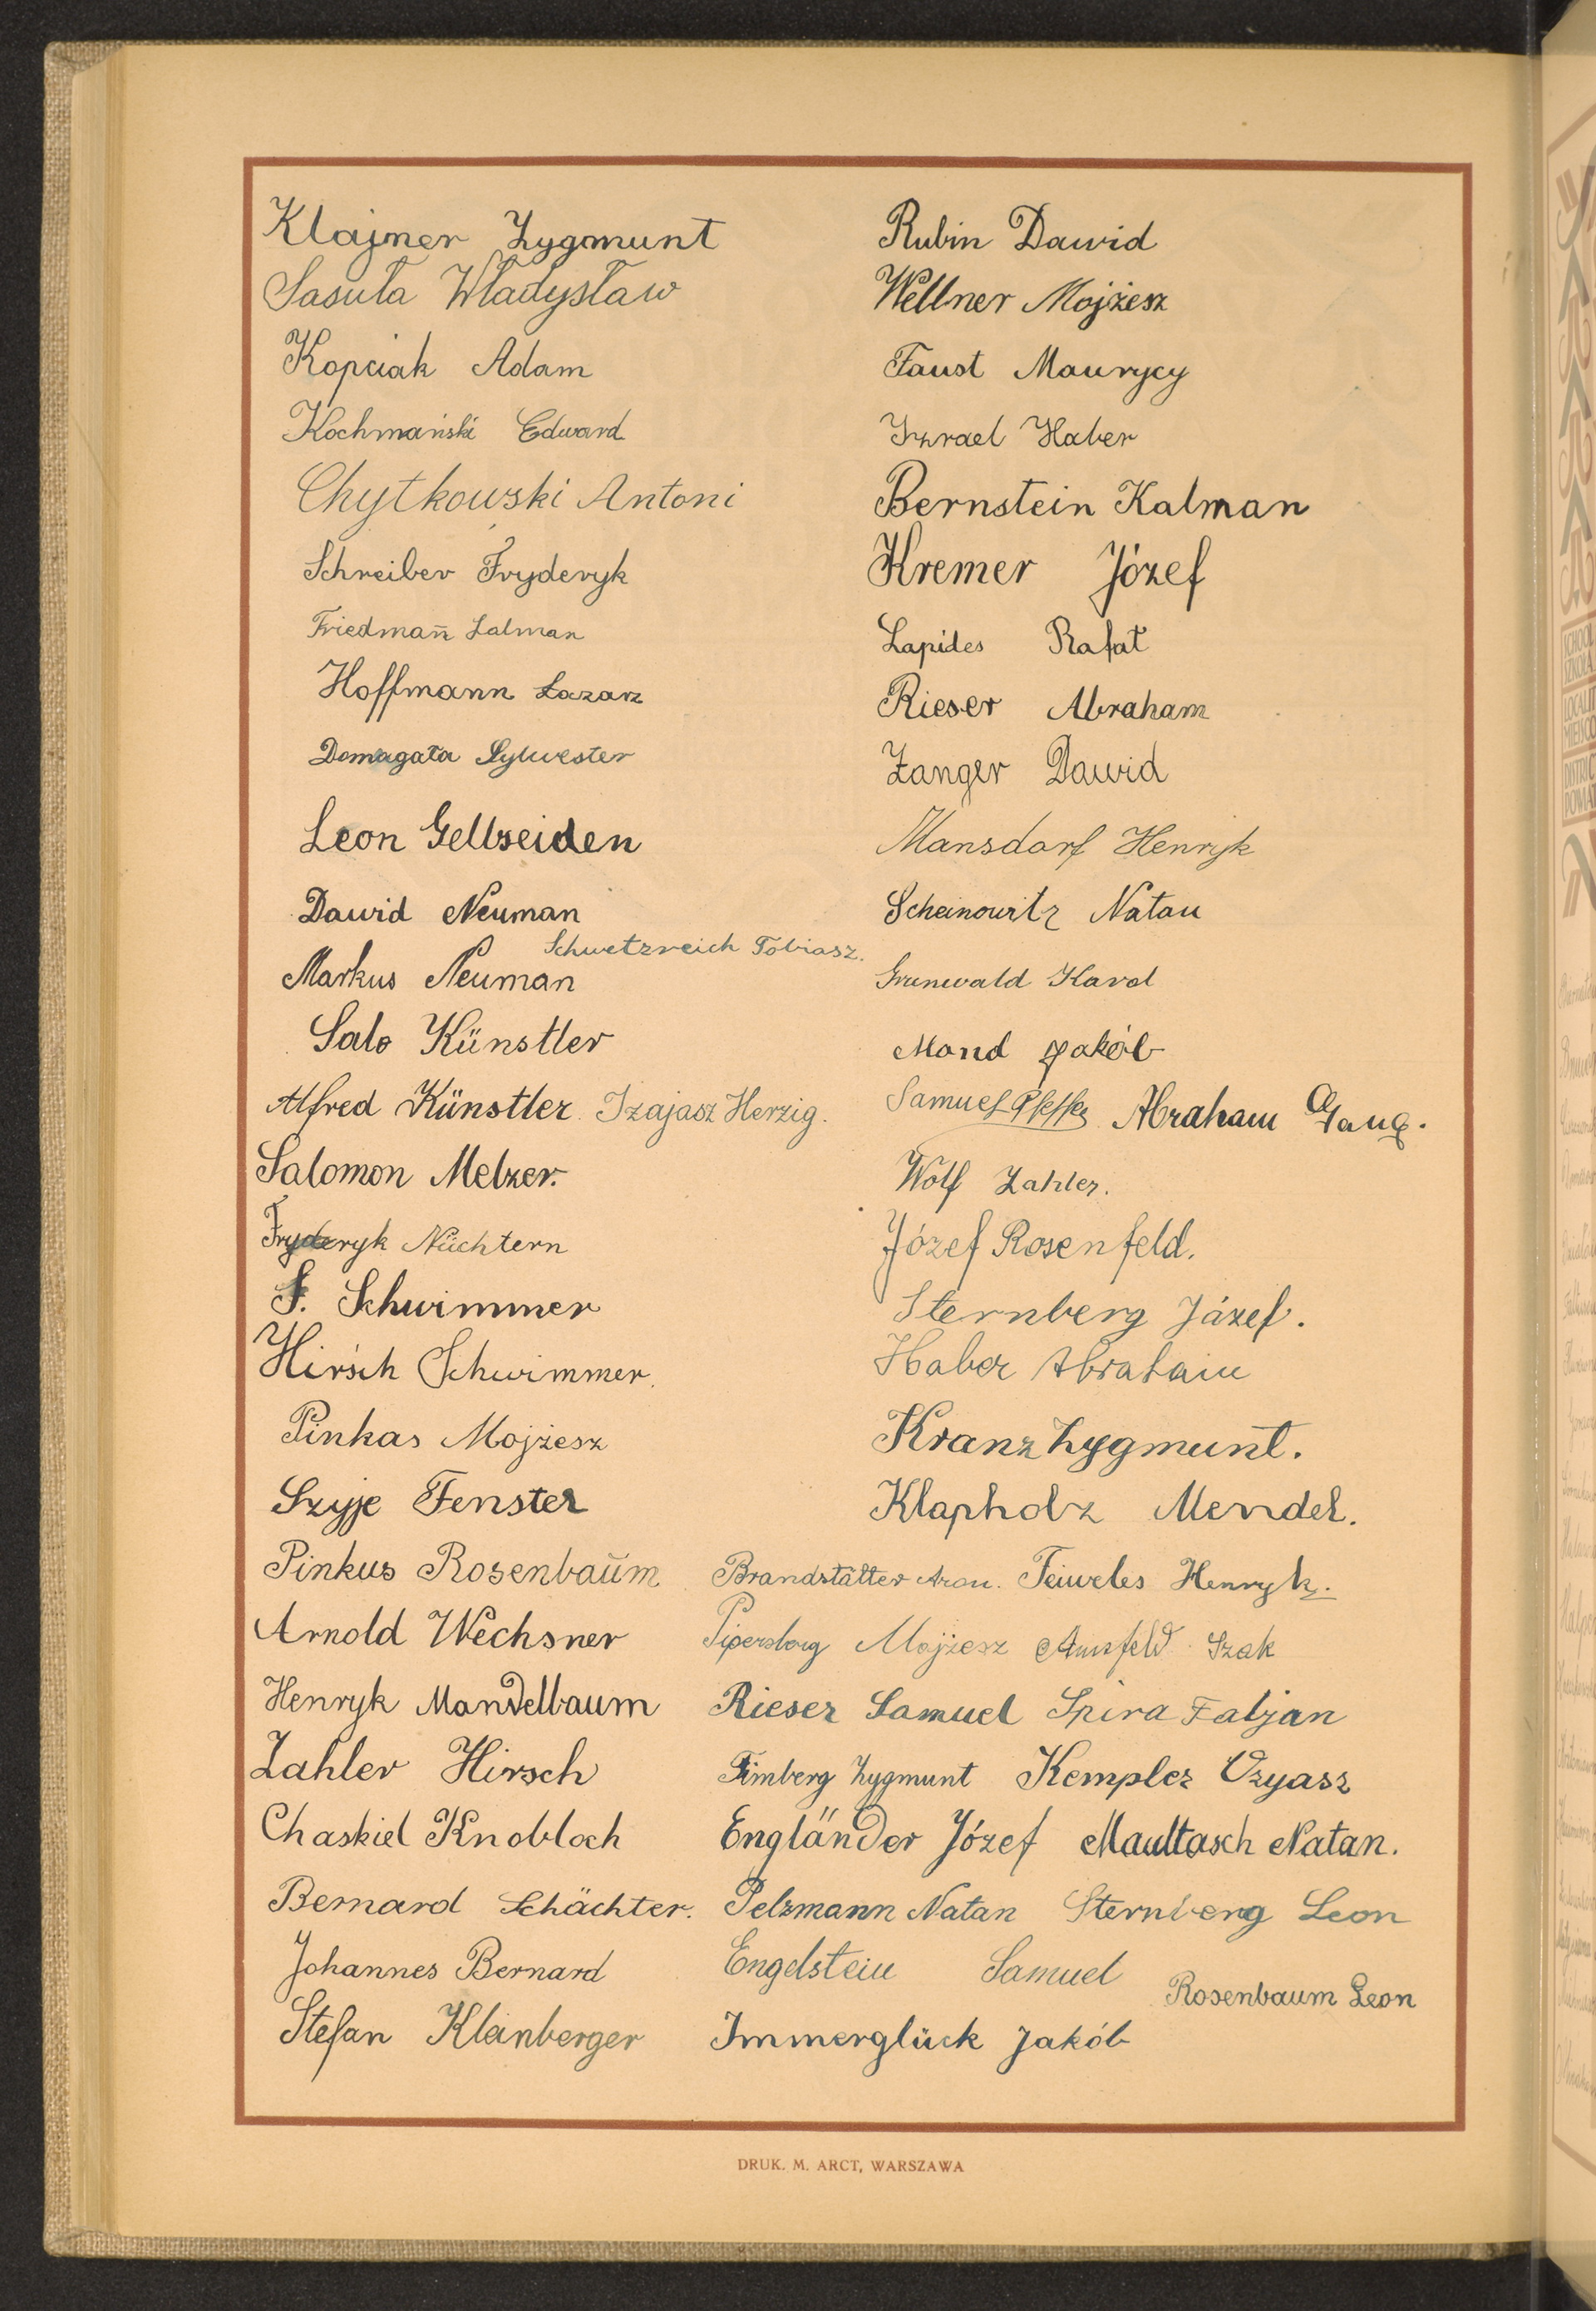 Klajner Zygmunt
Sasuła Władysław
Kopciak Adam
Kochmański Edward
Chytkowski Antoni
Schreiber Fryderyk
Friedmañ Salman
Hoffmann Łazarz
Domagała Sylwester
Leon Gellseiden
Dawid Neuman
Schwetzreich Tobiasz.
Markus Neuman
Salo Künstler
Alfred Künstler Izajasz Herzig.
Salomon Melzer.
Fryderyk Nüchtern
S. Schwimmer
Hirsch Schwimmer.
Pinkas Mojżesz
Szyje Fenster
Pinkus Rosenbaum
Arnold Wechsner
Henryk Mandelbaum
Zahler Hirsch
Chaskiel Knobloch
Bernard Schächter.
Johannes Bernard
Stefan Kleinberger
Rubin Dawid
Wellner Mojżesz
Faust Maurycy
Izrael Haber
Bernstein Kalman
Kremer Józef
Lapides Rafał
Rieser Abraham
Zanger Dawid
Mansdorf Henryk
Scheinowitz Natan
Grunwald Karol
Mond Jakób
Samuel Pfeffer Abraham Gang.
Wolf Zahler.
Józef Rosenfeld.
Sternberg Józef.
Haber Abraham
Kranz Zygmunt.
Klapholz Mendel.
Brandstätter Aron. Feiweles Henryk.
Mojżesz Szak
Rieser Samuel Spira Fabjan
Fimberg Zygmunt Kempler Ozyasz
Engländer Józef Maultasch Natan.
Pelzmann Natan Sternberg Leon
Engelstein Samuel
Rosenbaum Leon
Immerglück Jakób
DRUK. M. ARCT, WARSZAWA